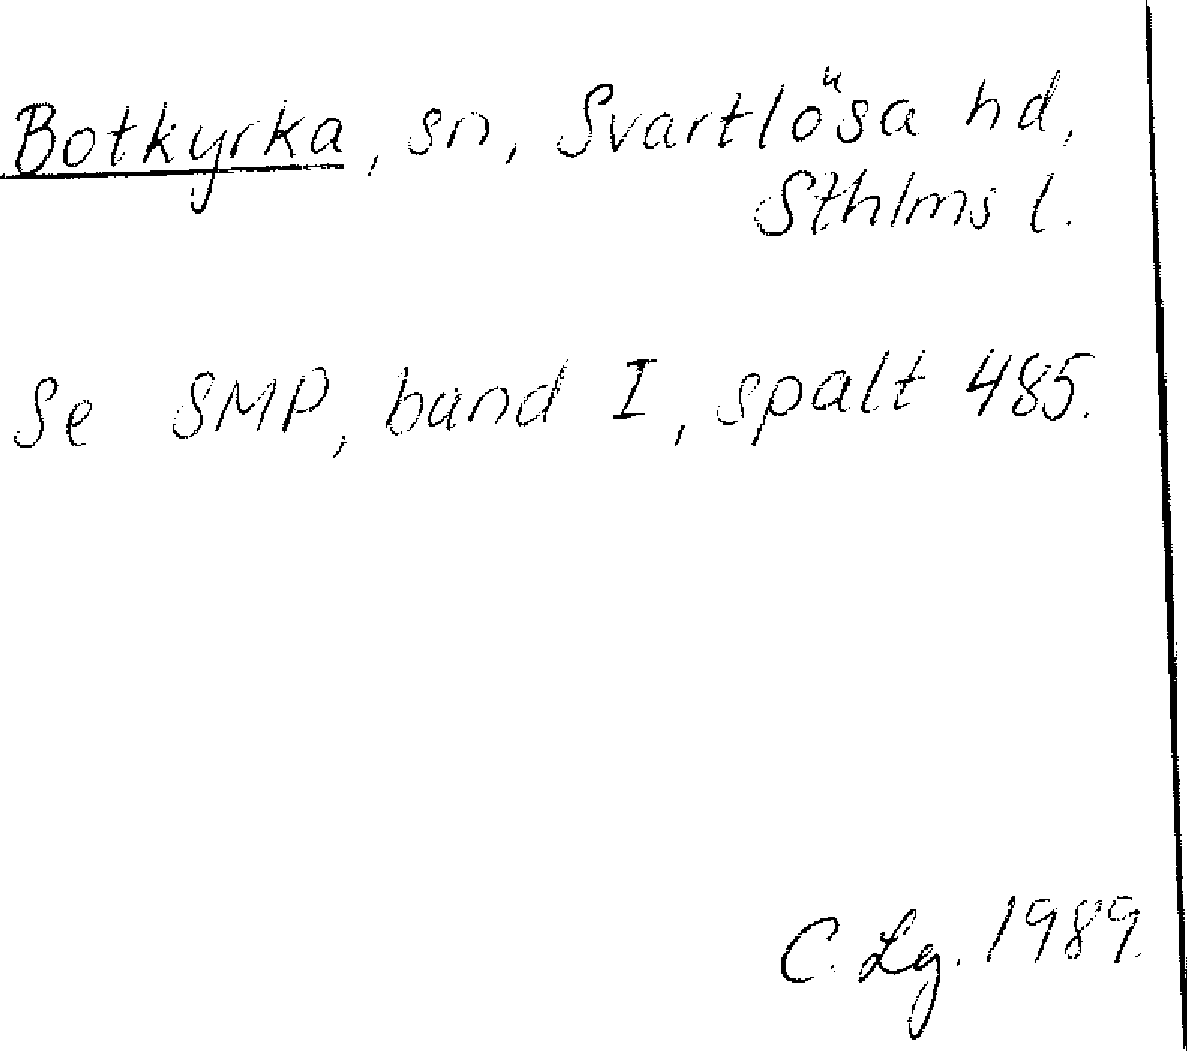 Botkyrka, sn, Svartlösa hd,
Sthlms l.
Se SMP, band I, spalt 485.
C. Lg. 1989.